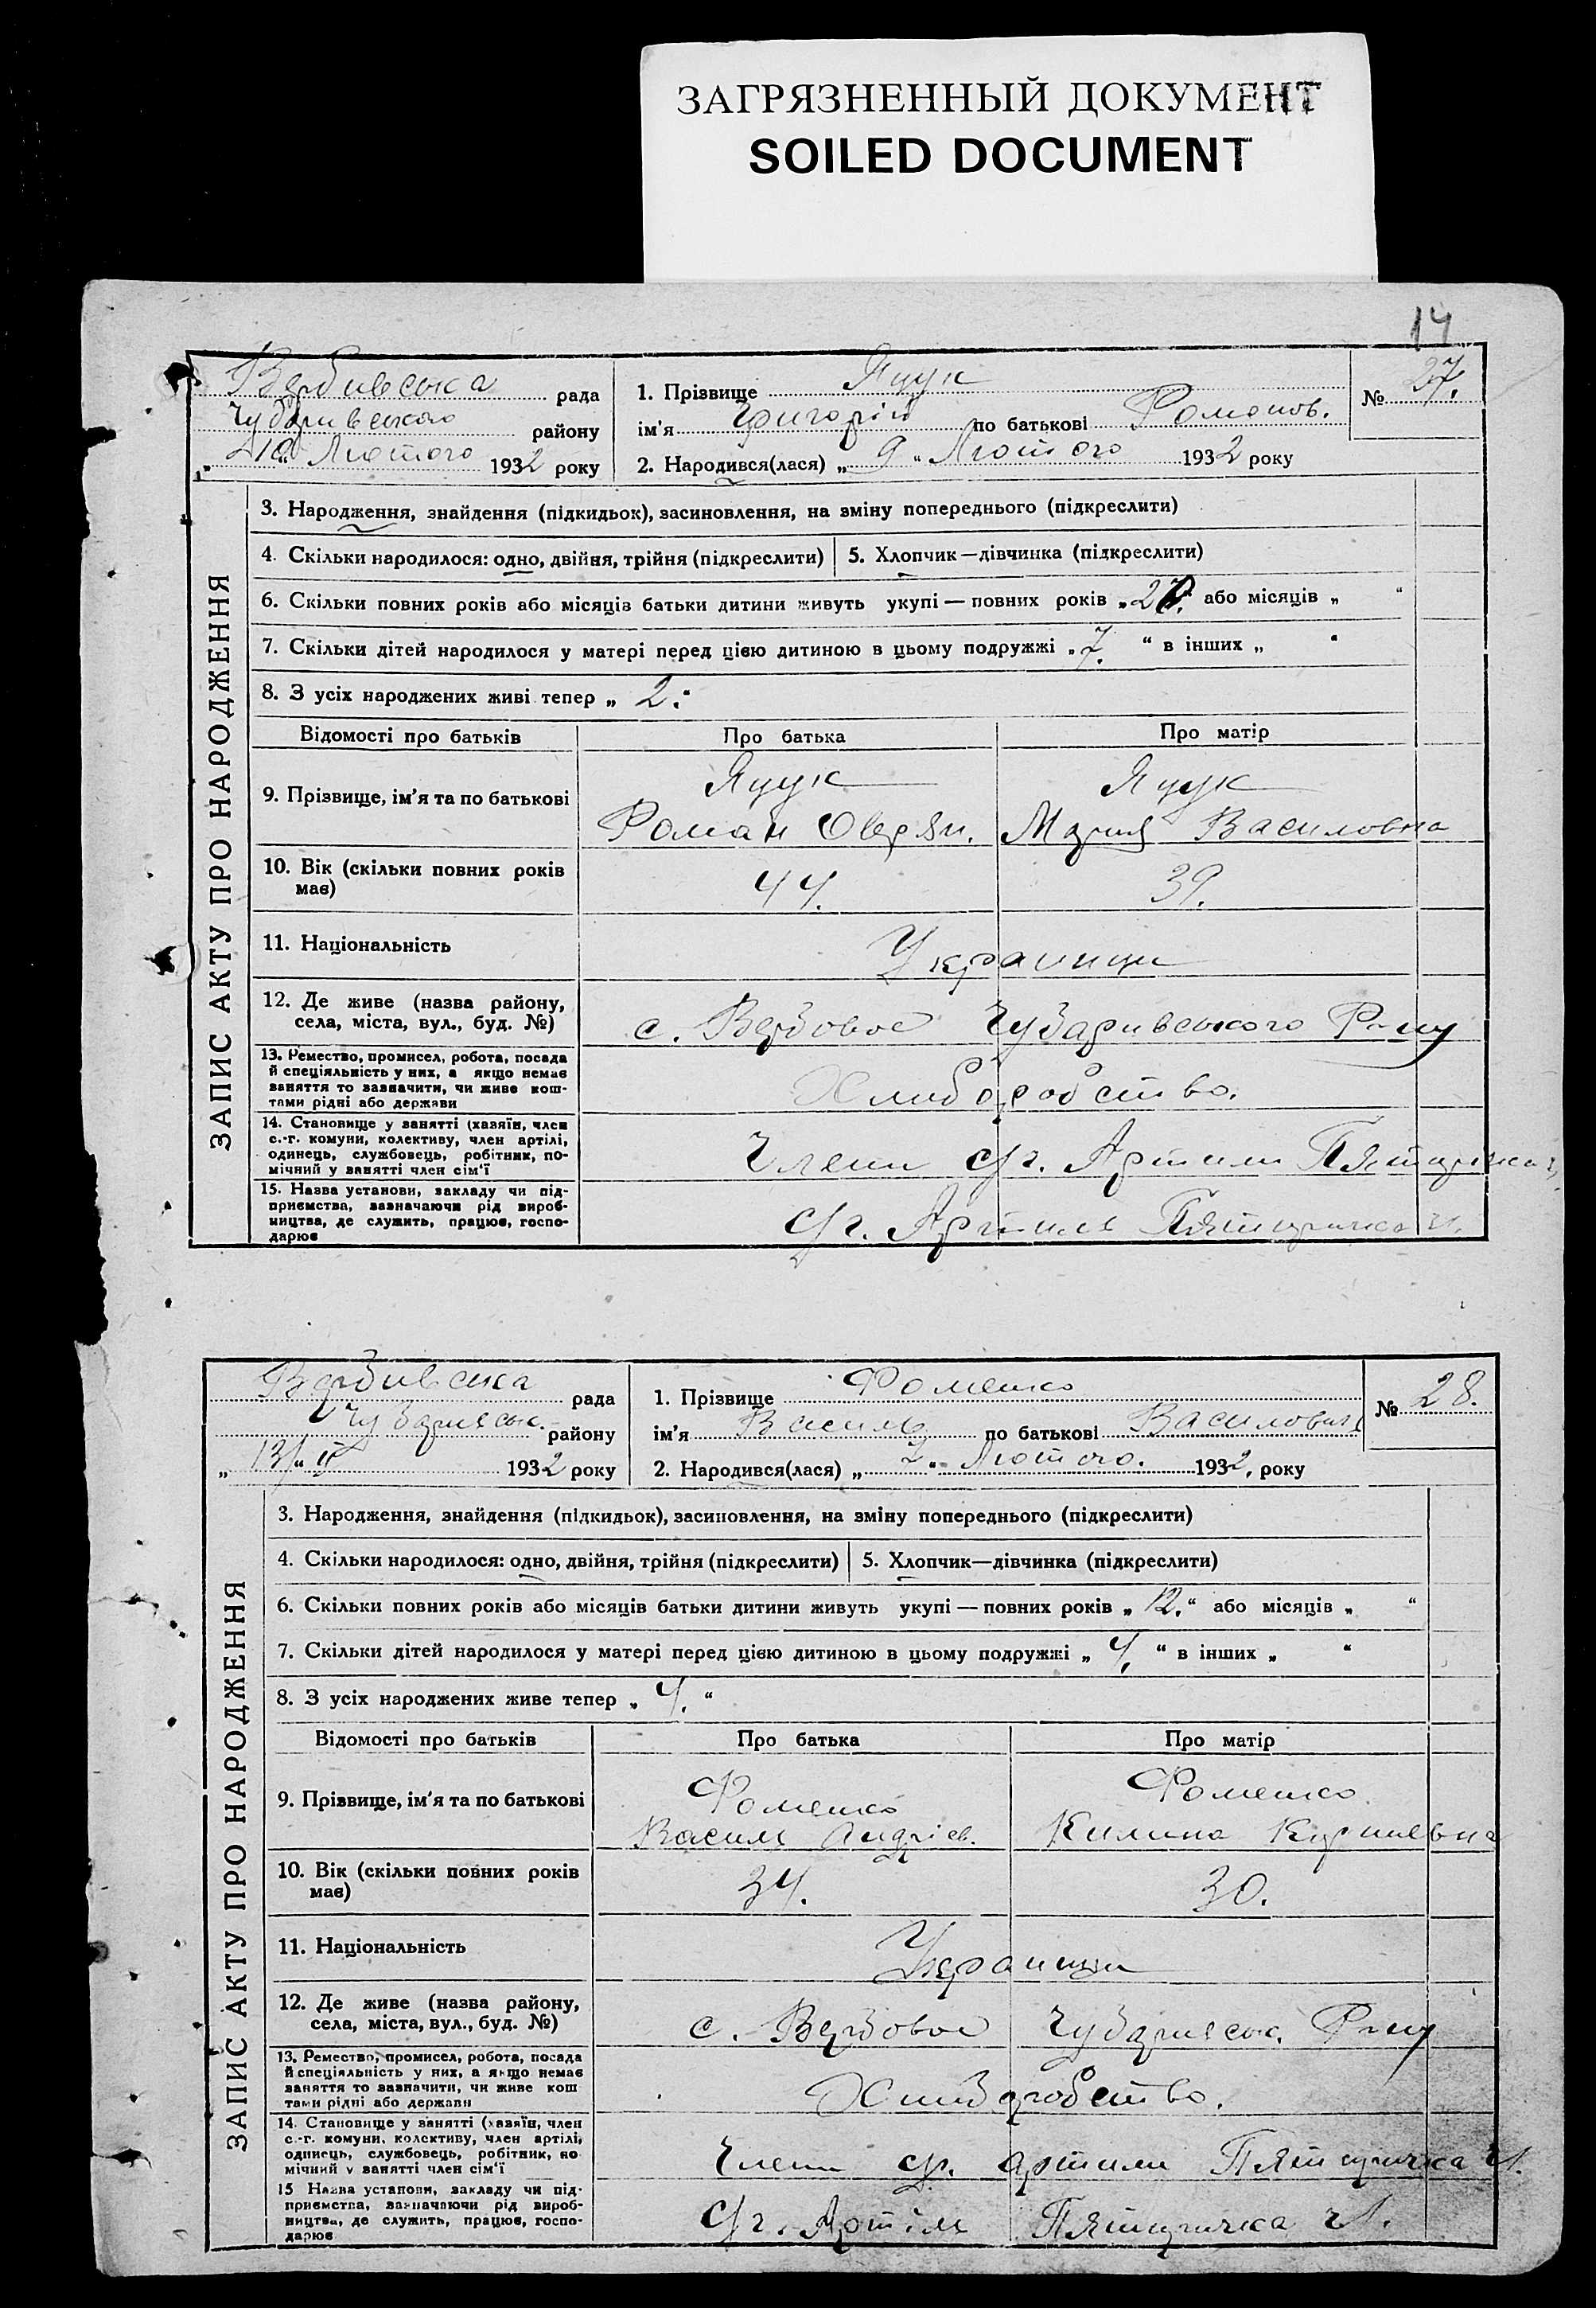 ЗАГРЯЗНЕННЫЙ ДОКУМЕНТ
SOILED DOCUMENT
14
Вербивська рада
Чубаривського району
„10“ Лютого 1932 року
1. Прізвище Яцук
ім'я Григорій по батькові Романов.
2. Народився(лася) „9“ Лютого 1932 року
№ 27.
ЗАПИС АКТУ ПРО НАРОДЖЕННЯ
3. Народження, знайдення (підкидьок), засиновлення, на зміну попереднього (підкреслити)
4. Скільки народилося: одно, двійня, трійня (підкреслити) 5. Хлопчик—дівчинка (підкреслити)
6. Скільки повних років або місяців батьки дитини живуть укупі — повних років „ або місяців „ “
7. Скільки дітей народилося у матері перед цією дитиною в цьому подружжі „7.“ в інших „ “
8. З усіх народжених живі тепер „2.“
Відомості про батьків Про батька Про матір
9. Прізвище, ім'я та по батькові
Яцук Яцук
Роман Оверян. Мария Василовна
10. Вік (скільки повних років має) 44. 39.
11. Національність Украинци
12. Де живе (назва району, села, міста, вул., буд. №)
с. Вербовое Чубаривського Р-ну
13. Ремество, промисел, робота, посада й спеціяльність у них, а якщо немає заняття то зазначити, чи живе коштами рідні або держави
Хлиборобство.
14. Становище у занятті (хазяїн, член с.-г. комуни, колективу, член артілі, одинець, службовець, робітник, помічний у занятті член сім'ї
Члени с/г. Артили Пятиричка
15. Назва установи, закладу чи підприємства, зазначаючи рід виробництва, де служить, працює, господарює
С/г. Артиль Пятиричка
Вербивська рада
Чубаривськ. району
„13/“ II 1932 року
1. Прізвище Фоменко
ім'я Василь по батькові Василович
2. Народився(лася) „ “ Лютого. 1932, року
№ 28.
ЗАПИС АКТУ ПРО НАРОДЖЕННЯ
3. Народження, знайдення (підкидьок), засиновлення, на зміну попереднього (підкреслити)
4. Скільки народилося: одно, двійня, трійня (підкреслити) 5. Хлопчик—дівчинка (підкреслити)
6. Скільки повних років або місяців батьки дитини живуть укупі — повних років „12.“ або місяців „ “
7. Скільки дітей народилося у матері перед цією дитиною в цьому подружжі „4.“ в інших „ “
8. З усіх народжених живе тепер „4.“
Відомості про батьків Про батька Про матір
9. Прізвище, ім'я та по батькові
Фоменко Фоменко
Василь Андріев. Килина
10. Вік (скільки повних років має) 34. 30.
11. Національність Украинци
12. Де живе (назва району, села, міста, вул., буд. №)
с. Вербовое Чубаривськ. Р-ну
13. Ремество, промисел, робота, посада й спеціяльність у них, а якщо немає заняття то зазначити, чи живе коштами рідні або держави
Хлиборобство.
14. Становище у занятті (хазяїн, член с.-г. комуни, колективу, член артілі, одинець, службовець, робітник, помічний у занятті член сім'ї
Члени с/г. артили Пятиричка
15 Назва установи, закладу чи підприємства, зазначаючи рід виробництва, де служить, працює, господарює
С/г. Артіль Пятиричка